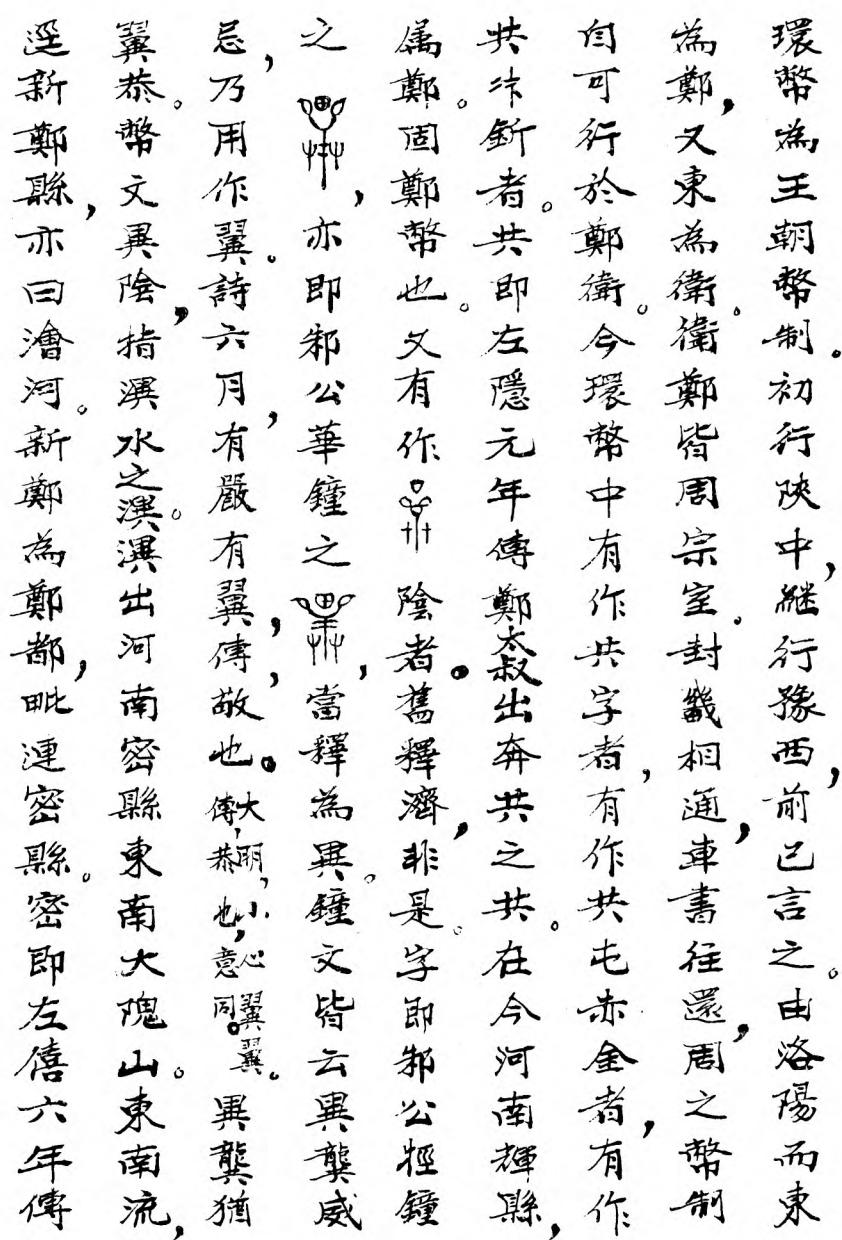 環幣為王朝幣制。初行陝中，繼行豫西，前已言之。由洛陽而東
為鄭，又東為衛。衛鄭皆周宗室。封畿相通，車書往還，周之幣制
自可行於鄭衛。今環幣中有作共字者，有作共屯赤金者，有作
共冸釿者。共即左隱元年傳鄭太叔出奔共之共。在今河南輝縣，
屬鄭。固鄭幣也。又有作陰者。舊釋濟，非是。字即邾公牼鐘
之，亦即邾公華鐘之，當釋為異。鐘文皆云異龔威
忌，乃用作翼。詩六月，有嚴有翼，傳，敬也。大明，小心翼翼。傳，恭也，意同。異龔猶
翼恭。幣文異陰，指潩水之潩。潩出河南密縣東南大隗山。東南流，
逕新鄭縣，亦曰澮河。新鄭為鄭都，毗連密縣。密即左僖六年傳